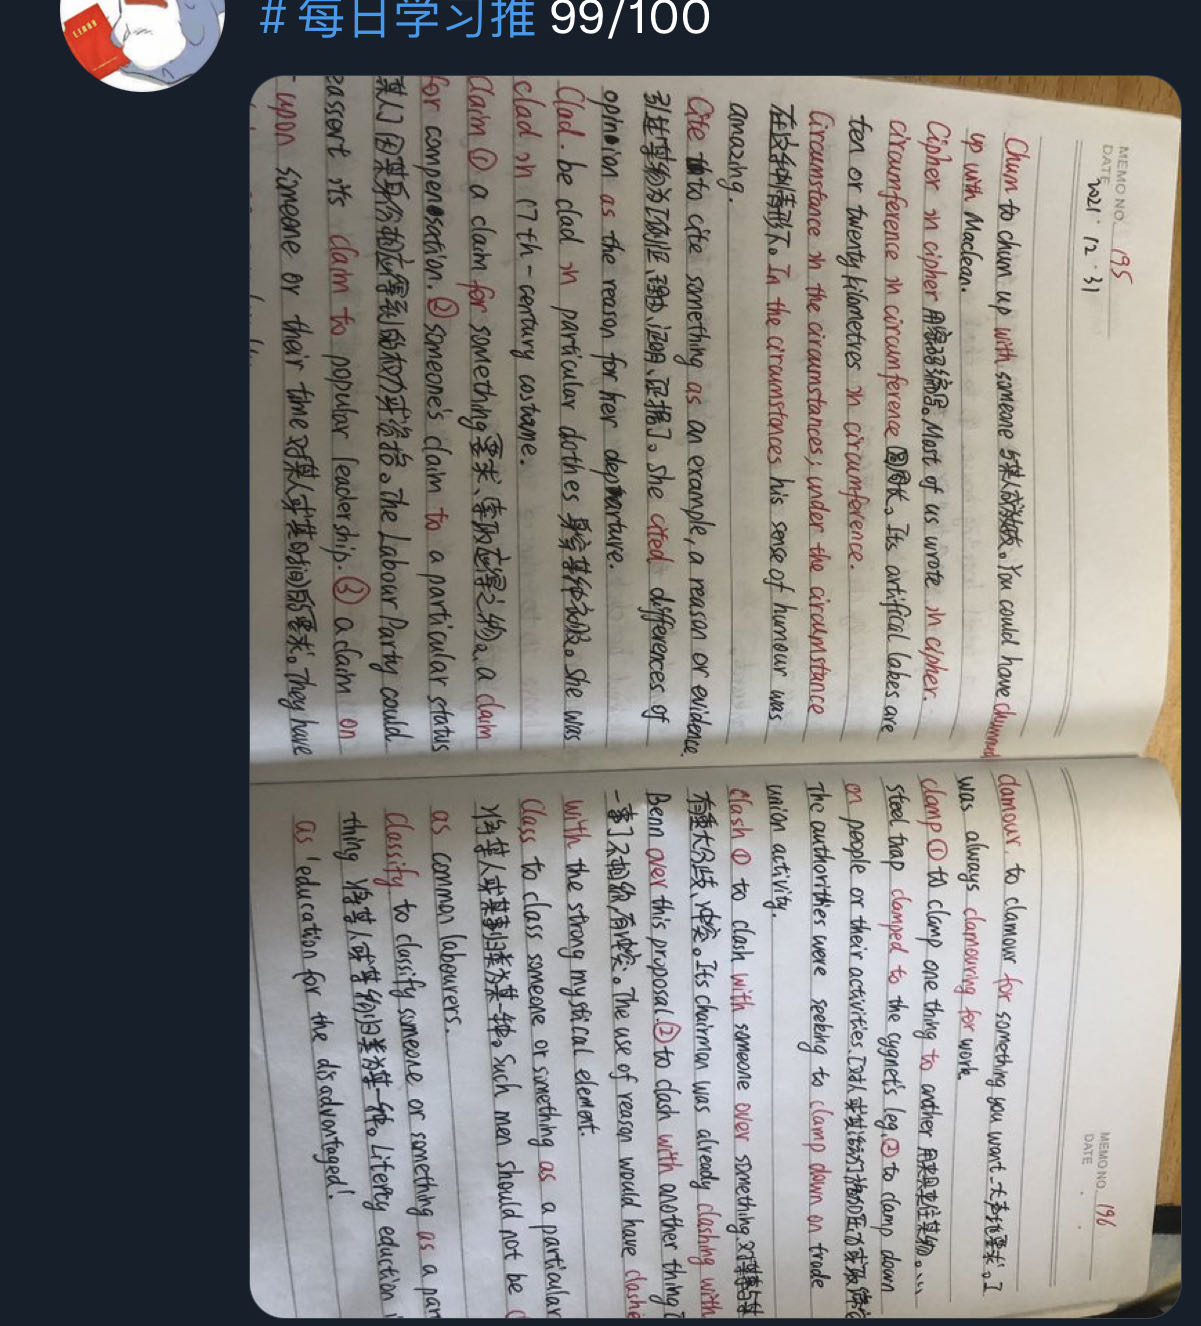 # 每日学习推 99/100
MEMO NO. 195
DATE 2021.12.31
Chum to chum up with someone 与某人成为朋友。You could have chummed
up with Maclean.
Cipher in cipher 用密码编写。Most of us wrote in cipher.
circumference in circumference 圆周长。Its artifical lakes are
ten or twenty kilometres in circumference.
Circumstance in the circumstances; under the circumstance
在这种情形下。In the circumstances his sense of humour was
amazing.
Cite to cite something as an example, a reason or evidence
引述某物为[例证、理由、证明、证据]。She cited differences of
opinion as the reason for her departure.
Clad. be clad in particular clothes 身穿某种衣服。She was
clad in 17th-century costume.
Claim ① a claim for something 要求、索取应得之物。a claim
for compensation. ② someone's claim to a particular status
某人因某身份地位等得到的权力或资格。The Labour Party could
reassert its claim to popular leadership. ③ a claim on
- upon someone or their time 对某人或其时间的要求。They have
MEMO NO. 196
DATE
clamour to clamour for something you want 大声地要求。I
was always clamouring for work.
clamp ① to clamp one thing to another 用夹具夹住某物。
steel trap clamped to the cygnet's leg. ② to clamp down
on people or their activities.
The authorities were seeking to clamp down on trade
union activity.
clash ① to clash with someone over something
有重大分歧、冲突。Its chairman was already clashing with
Benn over this proposal. ② to clash with another thing [
一事]不相容，有冲突。The use of reason would have clashe
with the strong mystical element.
Class to class someone or something as a particular
将某人或某事归类为某一种。Such men should not be c
as common labourers.
classify to classify someone or something as a par
thing 将某人或某物归类为某一种。Literty education
as 'education for the disadvantaged'.